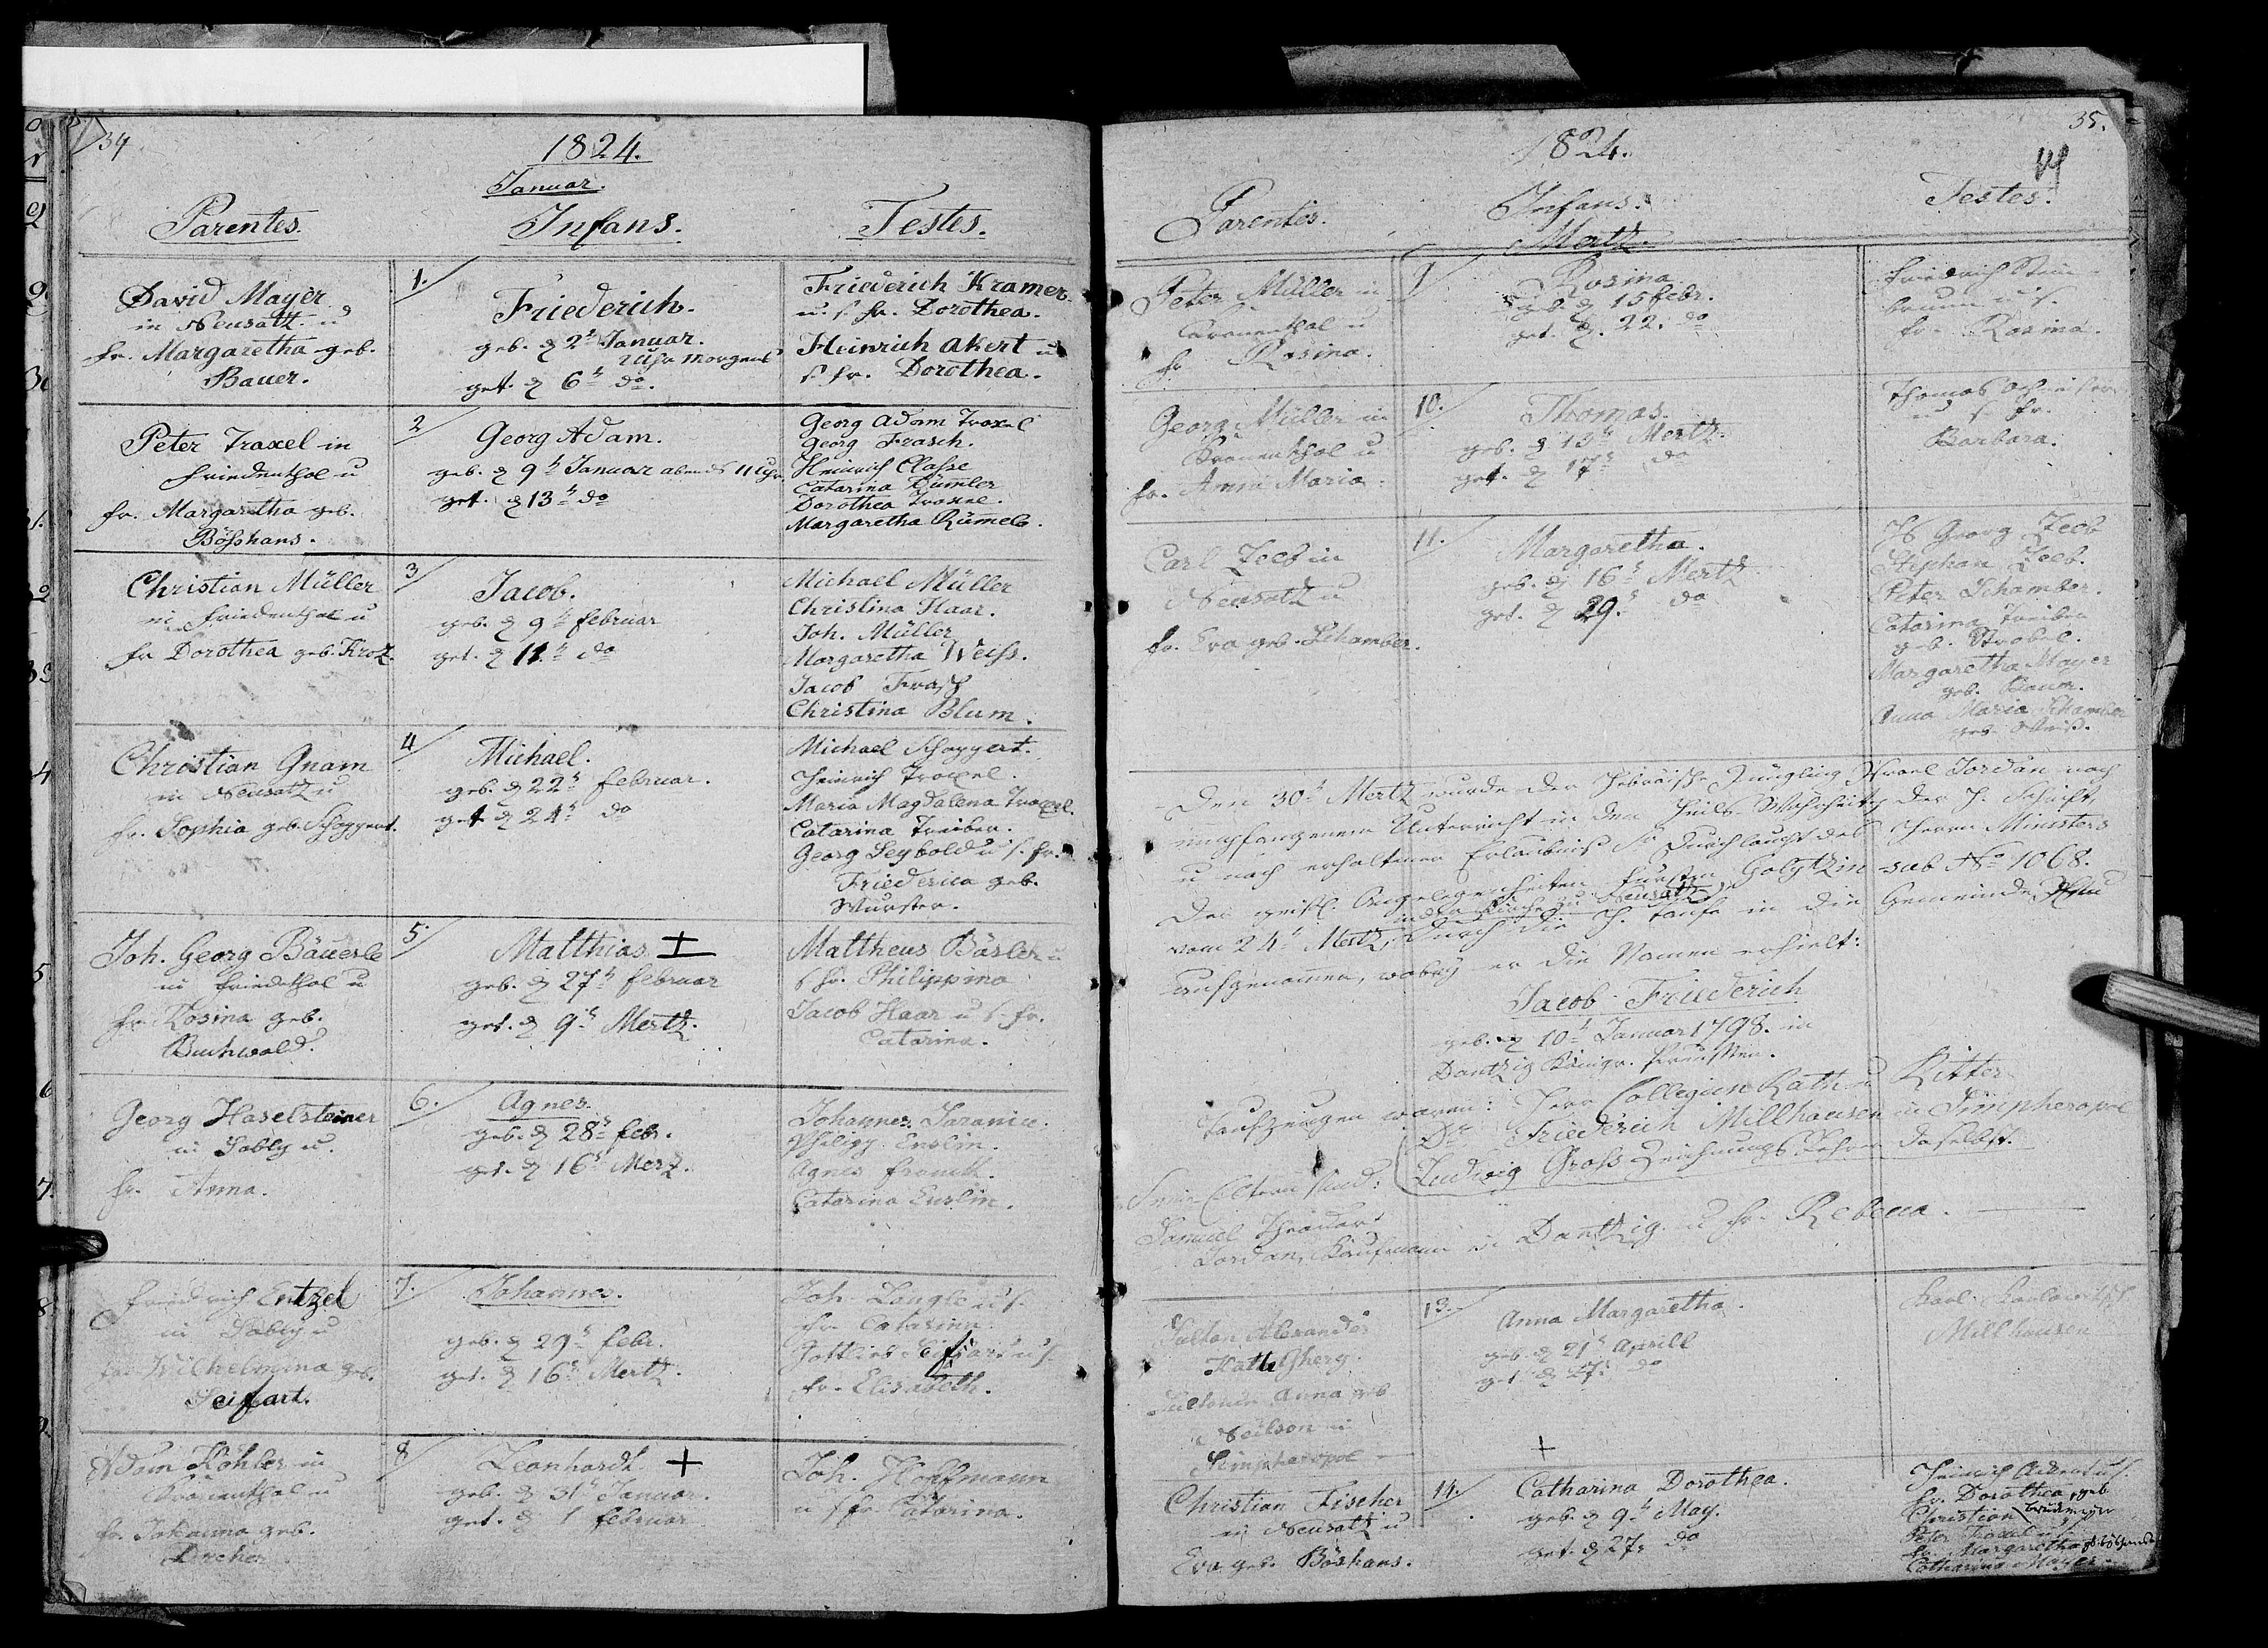 34
1824.
Januar.
Parentes.
Infans.
Testes.
David Mayer
in Neusatz u
fr. Margaretha geb.
Bauer.
1.
Friederich.
geb. d 2t Januar.
2 Uhr Morgens
get. d 6t do.
Friederich Kramer
u. s. fr. Dorothea.
Heinrich Akert u
s. fr. Dorothea.
Peter Traxel in
Friedenthal u
fr. Margaretha geb.
Böshans.
2
Georg Adam.
geb. d 9t Januar abends 11 Uhr.
get. d 13t do
Georg Adam Troxel
Georg Frasch.
Heinrich Classe
Catarina Dümler
Dorothea Troxel.
Margaretha Rümele.
Christian Müller
in Friedenthal u
fr Dorothea geb. Krotz.
3
Jacob.
geb. d 9t Februar
get. d 11t do
Michael Müller
Christina Haar.
Joh. Müller
Margaretha Weiss.
Jacob Frasch
Christina Blum.
Christian Gnam
in Neusatz u
fr. Sophia geb. Schoppert.
4
Michael.
geb. d 22t Februar.
get d 24t do
Michael Schoppert.
Heinrich Troxel.
Maria Magdalena Troxel.
Catarina Treiber.
Georg Seybold u s. fr.
Friederica geb.
Wurster.
Joh. Georg Bäuerle
in Friedethal u
fr. Rosina geb.
Buchwald.
5.
Matthias +
geb. d 27t Februar
get. d 9t Mertz.
Mattheus Bäsler u
s fr. Philippina
Jacob Haar u s. fr.
Catarina.
Georg Haselsteiner
in Sably u.
fr. Anna.
6.
Agnes.
geb. d 28t Febr.
get. d 16t Merz.
Johannes
Philipp Enslin.
Agnes Franck.
Catarina Enslin.
Friedrich Entzel
in Sably u
fr. Wilhelmina geb.
Seifart.
7.
Johannes.
geb. d 29t Febr.
get. d 16t Mertz.
Joh. Längle u s.
fr. Catarina.
Gottlieb Seifart u s
fr. Elisabeth.
Adam Köhler in
Kronenthal u
fr. Johanna geb.
8
Leonhardt +
geb. d 31t Januar.
get. d 1 Februar
Joh. Hoffmann
u s fr. Catarina.
35.
1824.
Parentes.
Infans.
Testes.
Mertz.
Peter Müller in
Kronenthal u
fr Rosina.
9
Rosina
geb. d 15 Febr.
get. d. 22. do
Friedrich
u s.
fr. Rosina.
Georg Müller in
Kronenthal u
fr. Anna Maria.
10.
Thomas.
geb. d 13t Mertz.
get. d 17t do
Thomas
u s fr.
Barbara.
Carl Zeeb in
Neusatz u
fr. Eva geb. Schamber.
11.
Margaretha.
geb. d 16t Mertz
get. d 29t do
Georg Zeeb
Stephan Zeeb.
Peter Schamber.
Catarina Treiber
geb. Strobel.
Margaretha Mayer
geb. Bauer.
Anna Maria Schamber
geb. Weiss.
Den 30t Mertz wurde der Hebräische Jüngling Israel Jordan nach
empfangenem Unterricht in den Heils-Wahrheiten der H. Schrift,
u nach erhaltener Erlaubniss Sr Durchlaucht des Herrn Ministers
der geistl. Angelegenheiten Fürsten Galytzin sub No 1068.
in der Kirche zu Neusatz
vom 24t Mertz, durch die H. Taufe in die Gemeinde
aufgenommen, wobey er die Namen erhielt:
Jacob Friederich
geb. d 10t Januar 1798. in
Dantzig Königr. Preussen.
Taufzeugen waren: Herr Collegien Rath u Ritter
Dr Friederich Millhausen in Simpheropel
Ludwig Gross Zeichnungs Lehrer daselbst.
Seine Eltern sind:
Samuel
Jordan, Kaufmann in Dantzig u fr. Rebecca.
Sultan Alexander
Kattegherg
Sultanin Anna geb
Neilson in
Simpheropol
13.
Anna Margaretha.
geb. d 21t Aprill
get d 27t do
Millhausen
Christian Fischer
in Neusatz u
Eva geb. Böshans.
14.
+
Catharina Dorothea.
geb. d 9t May.
get. d 27. do
Heinrich Akert u s.
fr. Dorothea, geb
Christian
Peter Troxel u s.
fr. Margaretha geb. Böshans
Catharina Mayer.